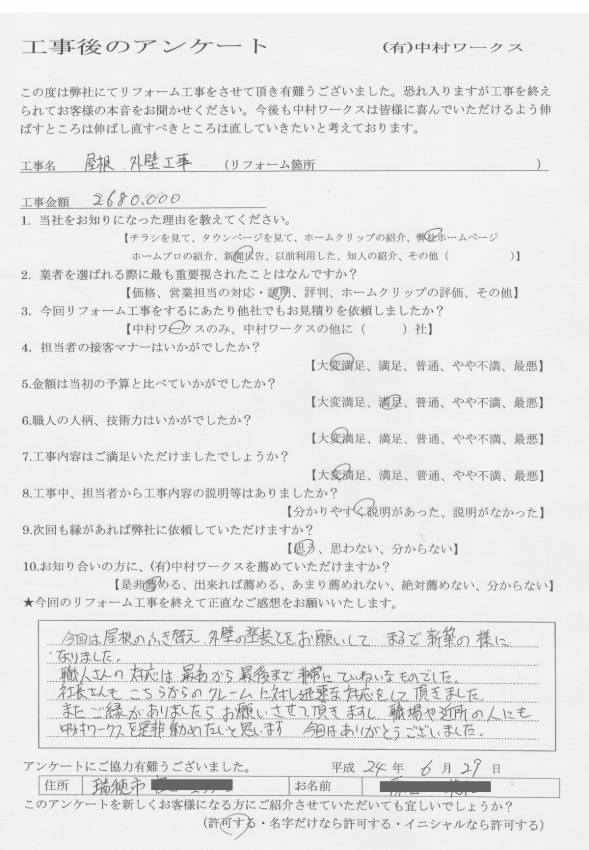 工事後のアンケート (有)中村ワークス
この度は弊社にてリフォーム工事をさせて頂き有難うございました。恐れ入りますが工事を終え
られてお客様の本音をお聞かせください。今後も中村ワークスは皆様に喜んでいただけるよう伸
ばすところは伸ばし直すべきところは直していきたいと考えております。
工事名 屋根、外壁工事 (リフォーム箇所 )
工事金額 2680.000
1. 当社をお知りになった理由を教えてください。
【チラシを見て、タウンページを見て、ホームクリップの紹介、弊社ホームページ
ホームプロの紹介、新聞広告、以前利用した、知人の紹介、その他( )】
2. 業者を選ばれる際に最も重要視されたことはなんですか?
【価格、営業担当の対応・説明、評判、ホームクリップの評価、その他】
3. 今回リフォーム工事をするにあたり他社でもお見積りを依頼しましたか?
【中村ワークスのみ、中村ワークスの他に( )社】
4. 担当者の接客マナーはいかがでしたか?
【大変満足、満足、普通、やや不満、最悪】
5.金額は当初の予算と比べていかがでしたか?
【大変満足、満足、普通、やや不満、最悪】
6.職人の人柄、技術力はいかがでしたか?
【大変満足、満足、普通、やや不満、最悪】
7.工事内容はご満足いただけましたでしょうか?
【大変満足、満足、普通、やや不満、最悪】
8.工事中、担当者から工事内容の説明等はありましたか?
【分かりやすく説明があった、説明がなかった】
9.次回も縁があれば弊社に依頼していただけますか?
【思う、思わない、分からない】
10.お知り合いの方に、(有)中村ワークスを薦めていただけますか?
【是非薦める、出来れば薦める、あまり薦めれない、絶対薦めない、分からない】
★今回のリフォーム工事を終えて正直なご感想をお願いいたします。
今回は屋根のふき替え、外壁の塗装とをお願いして まるで新築の様に
なりました。
職人さんの対応は最初から最後まで非常にていねいなものでした。
社長さんも こちらからのクレームに対し迅速な対応をして頂きました。
またご縁がありましたらお願いさせて頂きますし 職場や近所の人にも
中村ワークスを是非勧めたいと思います 今回はありがとうございました。
アンケートにご協力有難うございました。 平成 24 年 6 月 29 日
住所 瑞穂市 お名前
このアンケートを新しくお客様になる方にご紹介させていただいても宜しいでしょうか?
(許可する・名字だけなら許可する・イニシャルなら許可する)